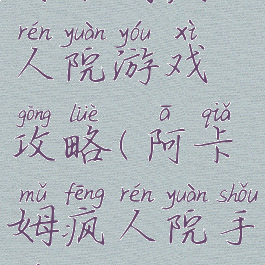 rén yuàn yóu xì
人院游戏
gōng lüè ā qiǎ
攻略(阿卡
mǔ fēng rén yuàn shǒu
姆疯人院手